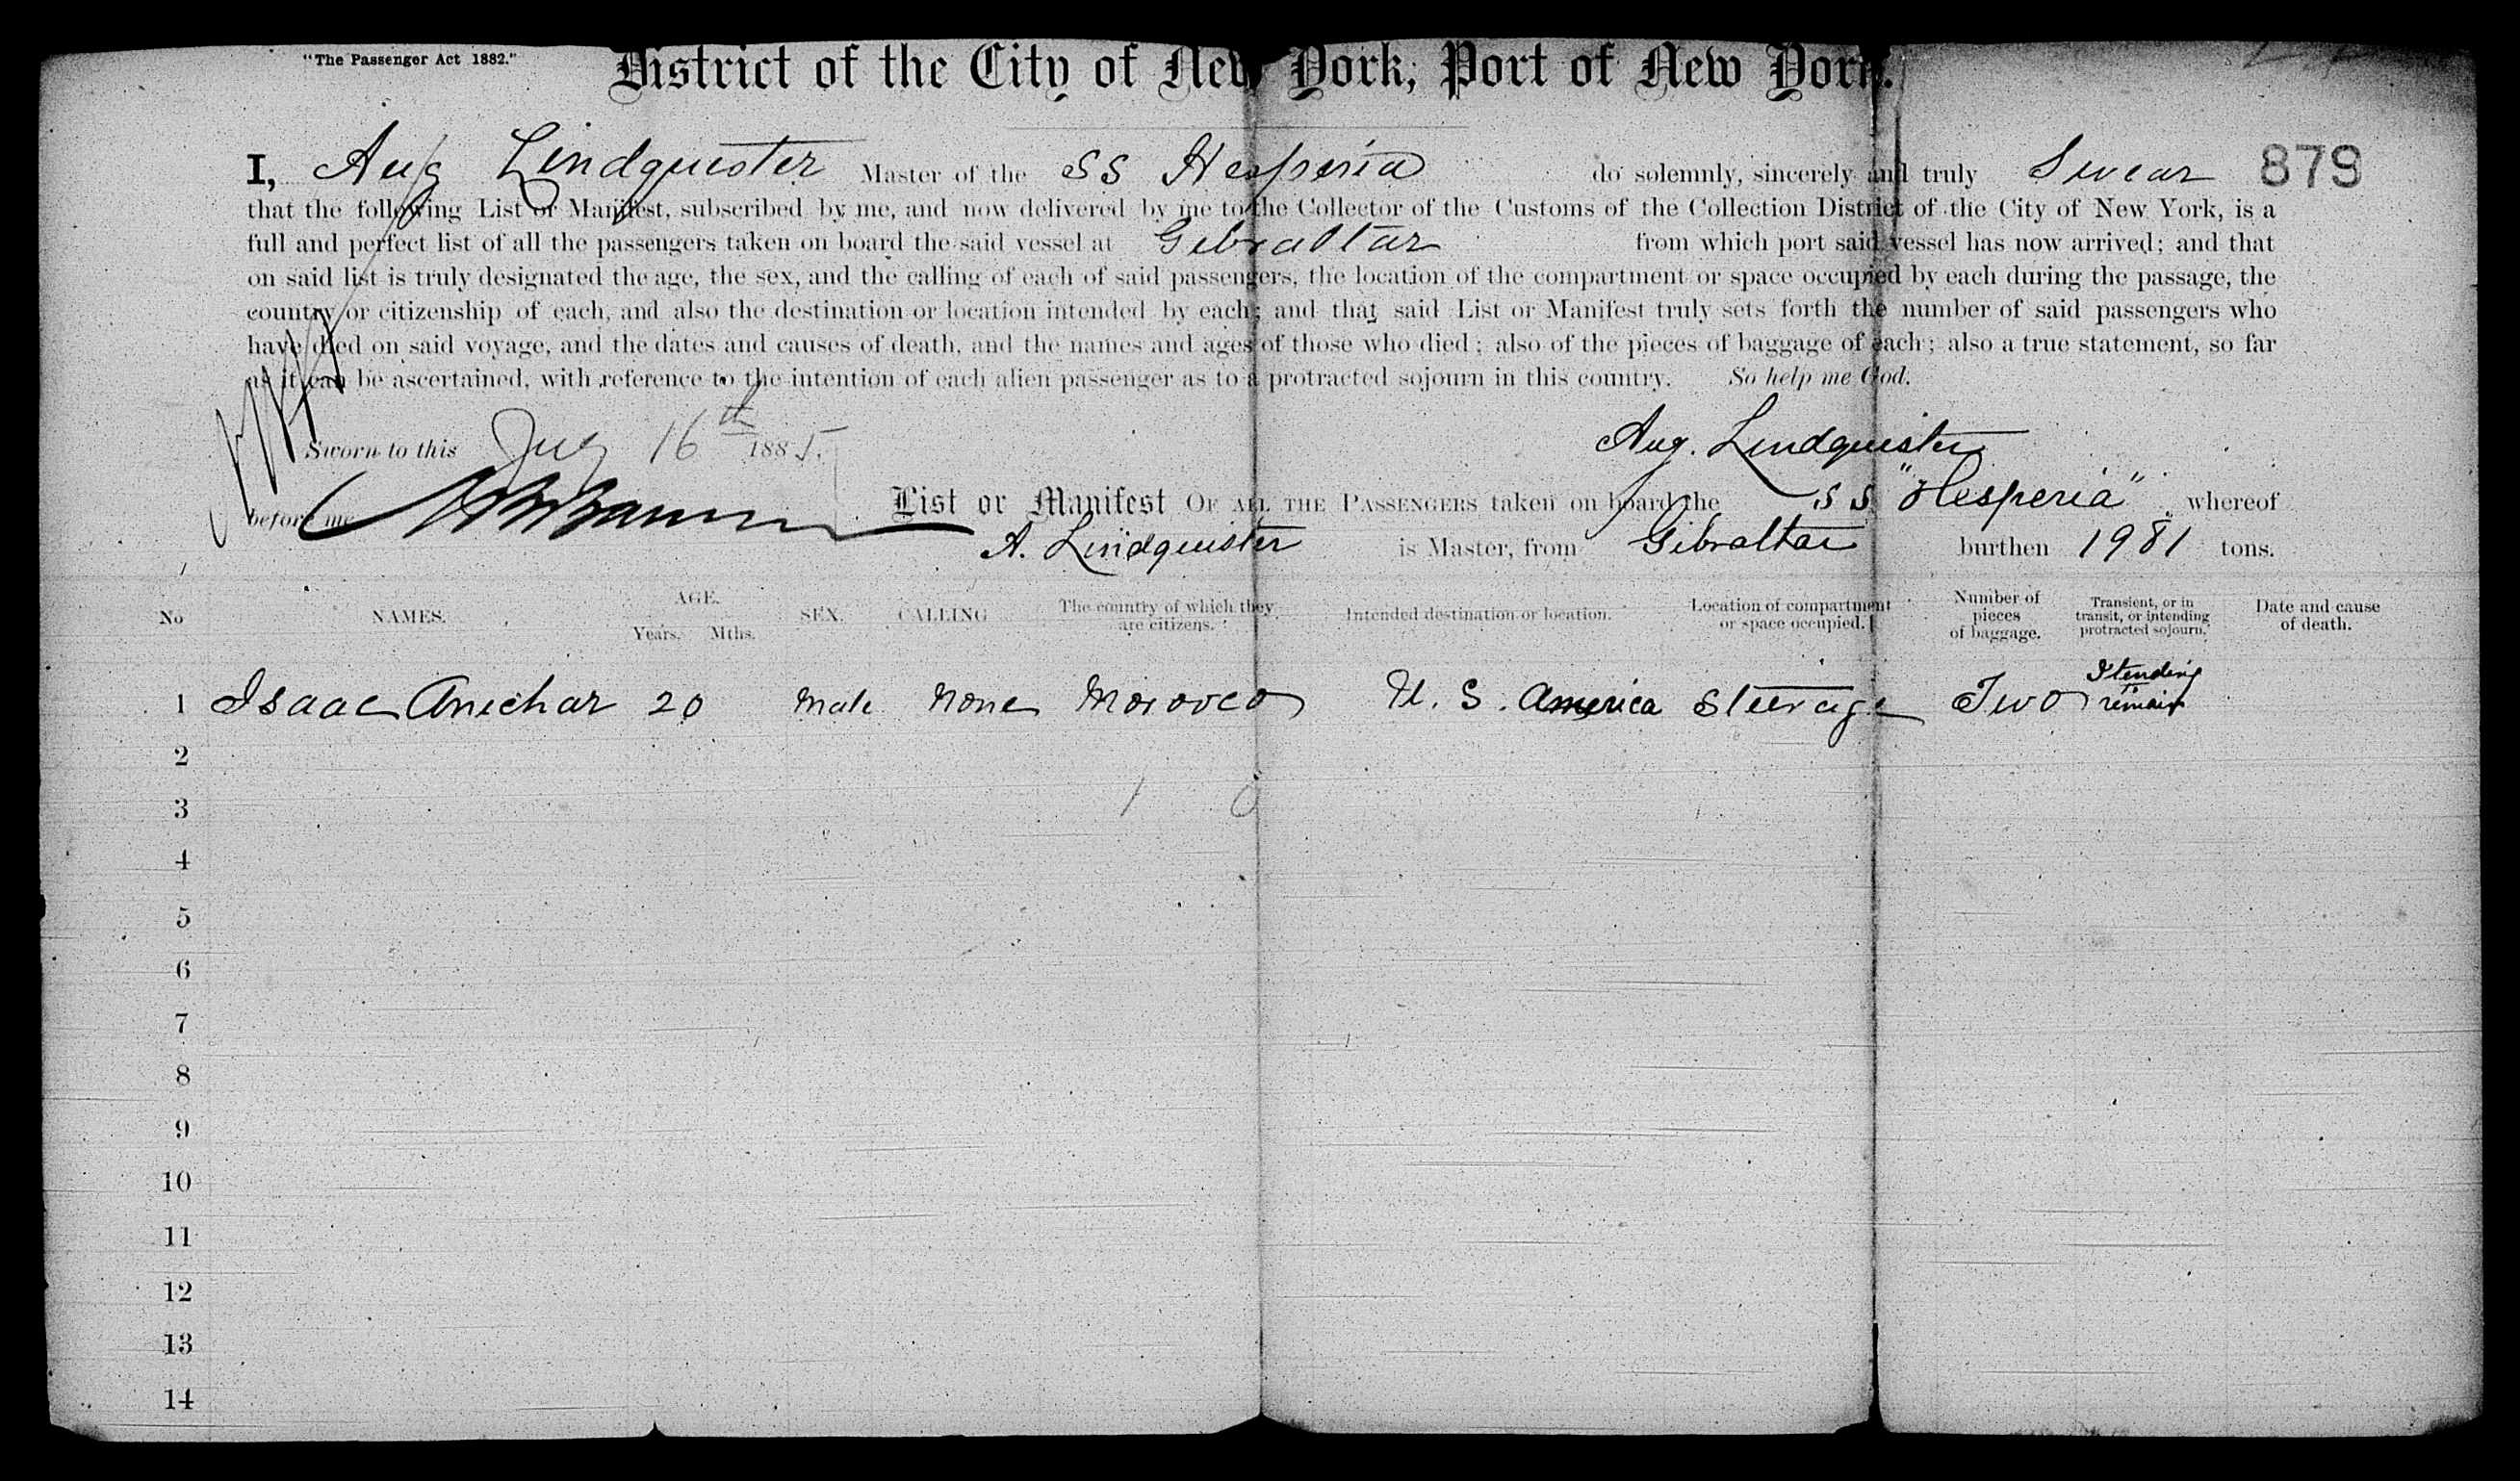 "The Passenger Act 1882."
District of the City of New York, Port of New York.
I, Aug Lindquister Master of the SS Hesperia do solemnly, sincerely and truly Swear 879
that the following List or Manifest, subscribed by me, and now delivered by me to the Collector of the Customs of the Collection District of the City of New York, is a
full and perfect list of all the passengers taken on board the said vessel at Gibraltar from which port said vessel has now arrived; and that
on said list is truly designated the age, the sex, and the calling of each of said passengers, the location of the compartment or space occupied by each during the passage, the
country or citizenship of each, and also the destination or location intended by each; and that said List or Manifest truly sets forth the number of said passengers who
have died on said voyage, and the dates and causes of death, and the names and ages of those who died; also of the pieces of baggage of each; also a true statement, so far
as it can be ascertained, with reference to the intention of each alien passenger as to a protracted sojourn in this country. So help me God.
Sworn to this 16th 1885.
Aug. Lindquister
before me
List or Manifest OF ALL THE PASSENGERS taken on board the SS "Hesperia" whereof
A. Lindquister is Master, from Gibraltar burthen 1981 tons.
No NAMES. AGE. Years. Mths. SEX. CALLING The country of which they are citizens. Intended destination or location. Location of compartment or space occupied. Number of pieces of baggage. Transient, or in transit, or intending protracted sojourn. Date and cause of death.
1 Isaac Anichar 20 Male None Morocco U. S. America Steerage Two Itending to remain
2
3
4
5
6
7
8
9
10
11
12
13
14